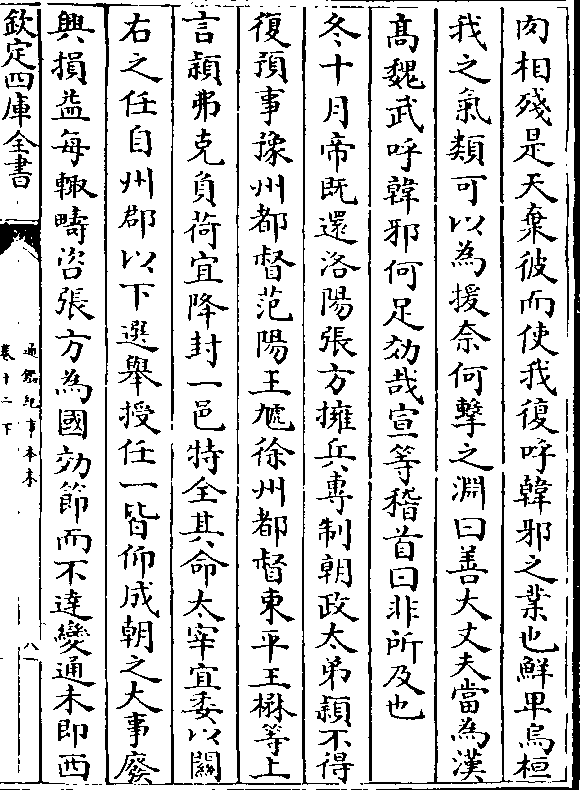 肉相殘是天棄彼而使我復呼韓邪之業也鮮卑烏桓
我之氣類可以為援奈何擊之淵曰善大丈夫當為漢
高魏武呼韓邪何足効哉宣等稽首曰非所及也
冬十月帝既還洛陽張方擁兵專制朝政太弟頴不得
復預事豫州都督范陽王虓徐州都督東平王楙等上
言頴弗克負荷宜降封一邑特全其命太宰宜委以關
右之任自州郡以下選舉授任一皆仰成朝之大事廢
興損益每輙疇咨張方為國効節而不達變通未即西
欽定四庫全書
通鑑紀事本末
卷十二下
八